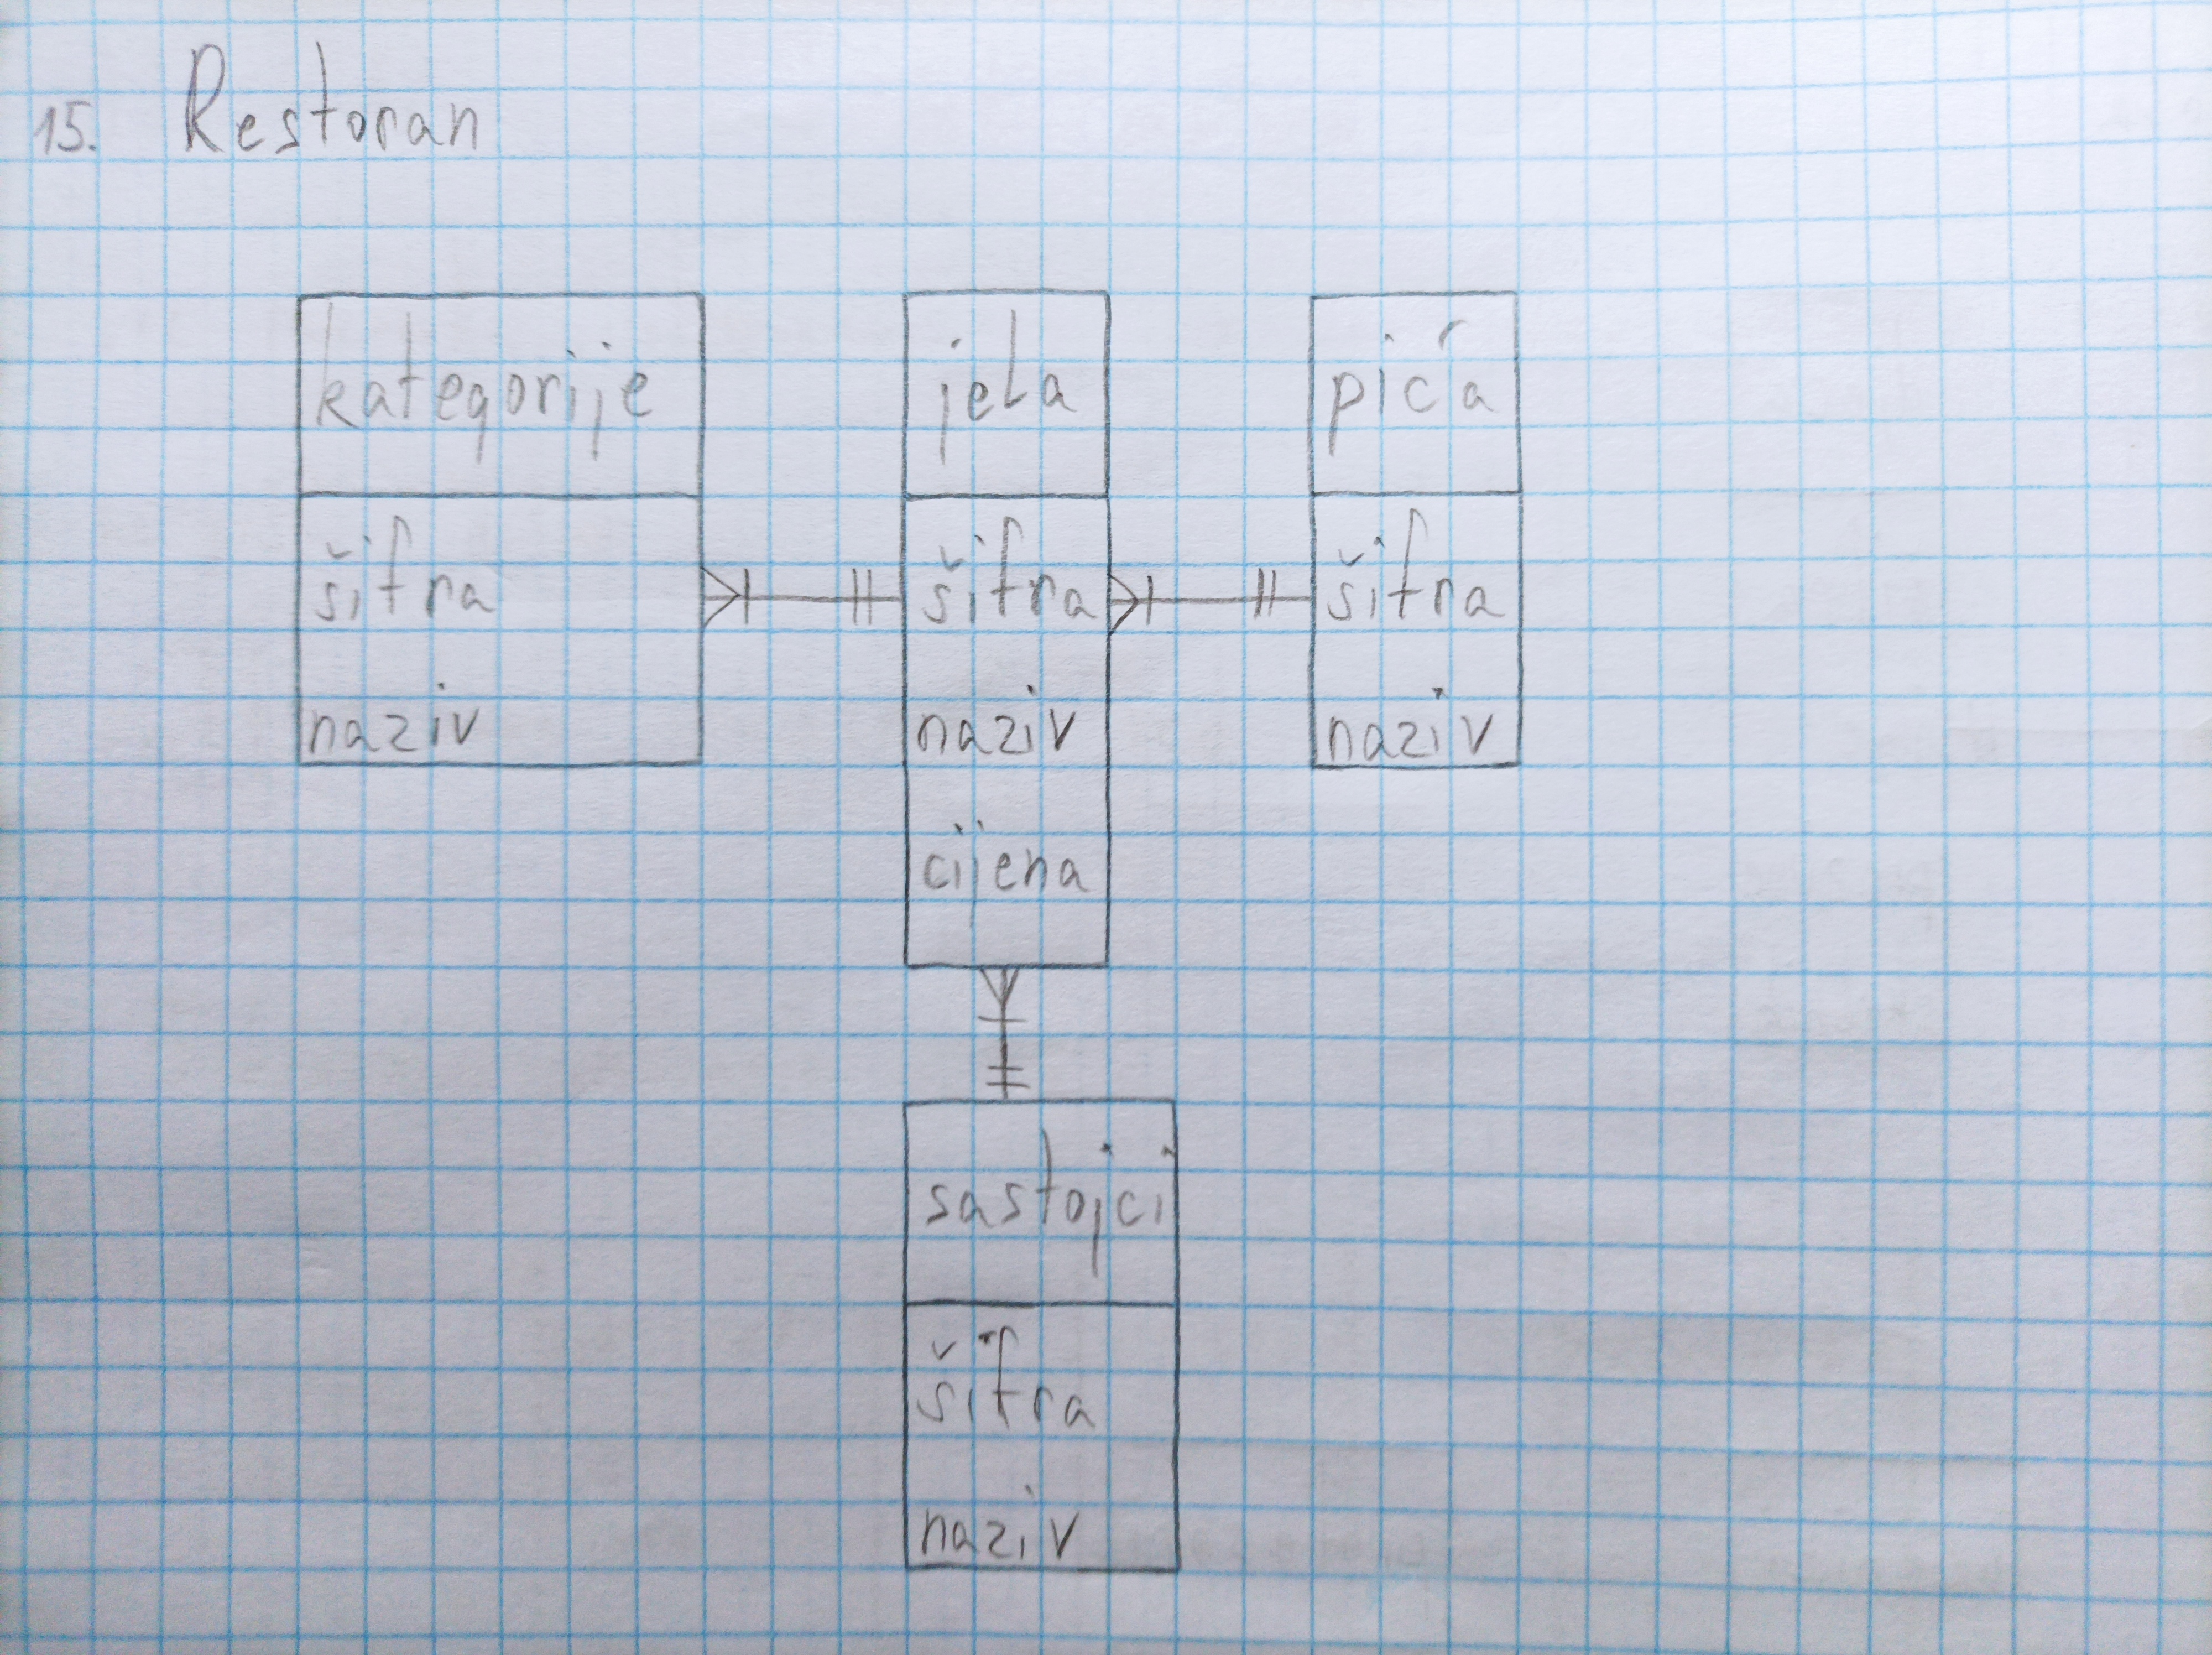 15. Restoran
kategorije
šifra
naziv
jela
šifra
naziv
cijena
pića
šifra
naziv
sastojci
šifra
naziv